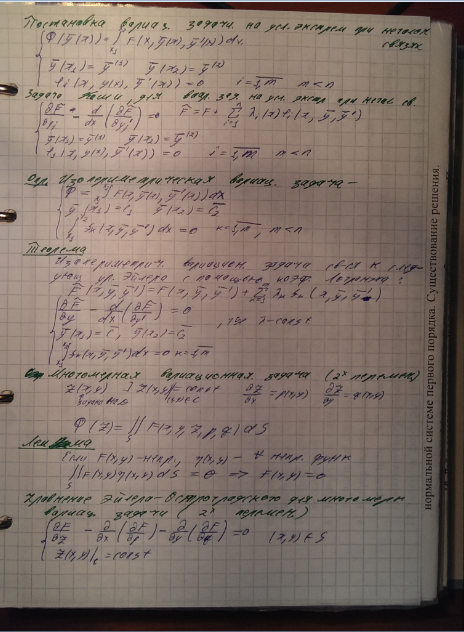 Постановка вариац. задачи на усл. экстрем при неголон. связях
Φ(ȳ(x)) = ∫ F(x, ȳ(x), ȳ'(x)) dx
ȳ(x₁) = ȳ⁽¹⁾ ȳ(x₂) = ȳ⁽²⁾
(x, y(x), ȳ'(x)) = 0 i = 1,m m < n
Задача для вар. зад. на усл. экстр. при негол. св.
∂F̃/∂yⱼ - d/dx (∂F̃/∂y'ⱼ) F̃ = F + Σ λᵢ(x) (x, ȳ, ȳ')
ȳ(x₁) = ȳ⁽¹⁾ ȳ(x₂) = ȳ⁽²⁾
(x, y(x), ȳ'(x)) = 0 i = 1,m m < n
Опр. Изопериметрических вариац. задача -
Φ = ∫ F(x, ȳ(x), ȳ'(x)) dx
ȳ(x₁) = ȳ(x₂) =
(x, ȳ, ȳ') dx = 0 k = 1,m, m < n
Теорема
Изопериметрич. вариацион. задача к след-
ующ. ур. Эйлера с помощью коэф. Лагранжа:
F̃(x, ȳ, ȳ') = F(x, ȳ, ȳ') + Σ (x, ȳ, ȳ')
∂F̃/∂y - d/dx (∂F̃/∂y') = 0 , где λ-const
ȳ(x₁) = , ȳ(x₂) =
(x, ȳ, ȳ') dx = 0 k = 1,m
Многомерная вариационная задача (2ˣ перемен)
Z(x,y) Z(x,y) = const ∂Z/∂x = p(x,y) ∂Z/∂y = q(x,y)
Φ(Z) = ∬ F(x, y, Z, p, q) dS
Лемма
Если F(x,y) - непр., η(x,y) - ∀ непр. функ
∬ F(x,y) η(x,y) dS = 0 ⟹ F(x,y) = 0
Уравнение Эйлера-Остроградского для многомерн
вариац. задачи (2ˣ перемен)
∂F/∂Z - ∂/∂x (∂F/∂p) - ∂/∂y (∂F/∂q) = 0 (x,y) ∈ S
Z(x,y)|c = const
нормальной системе первого порядка. Существование решения.